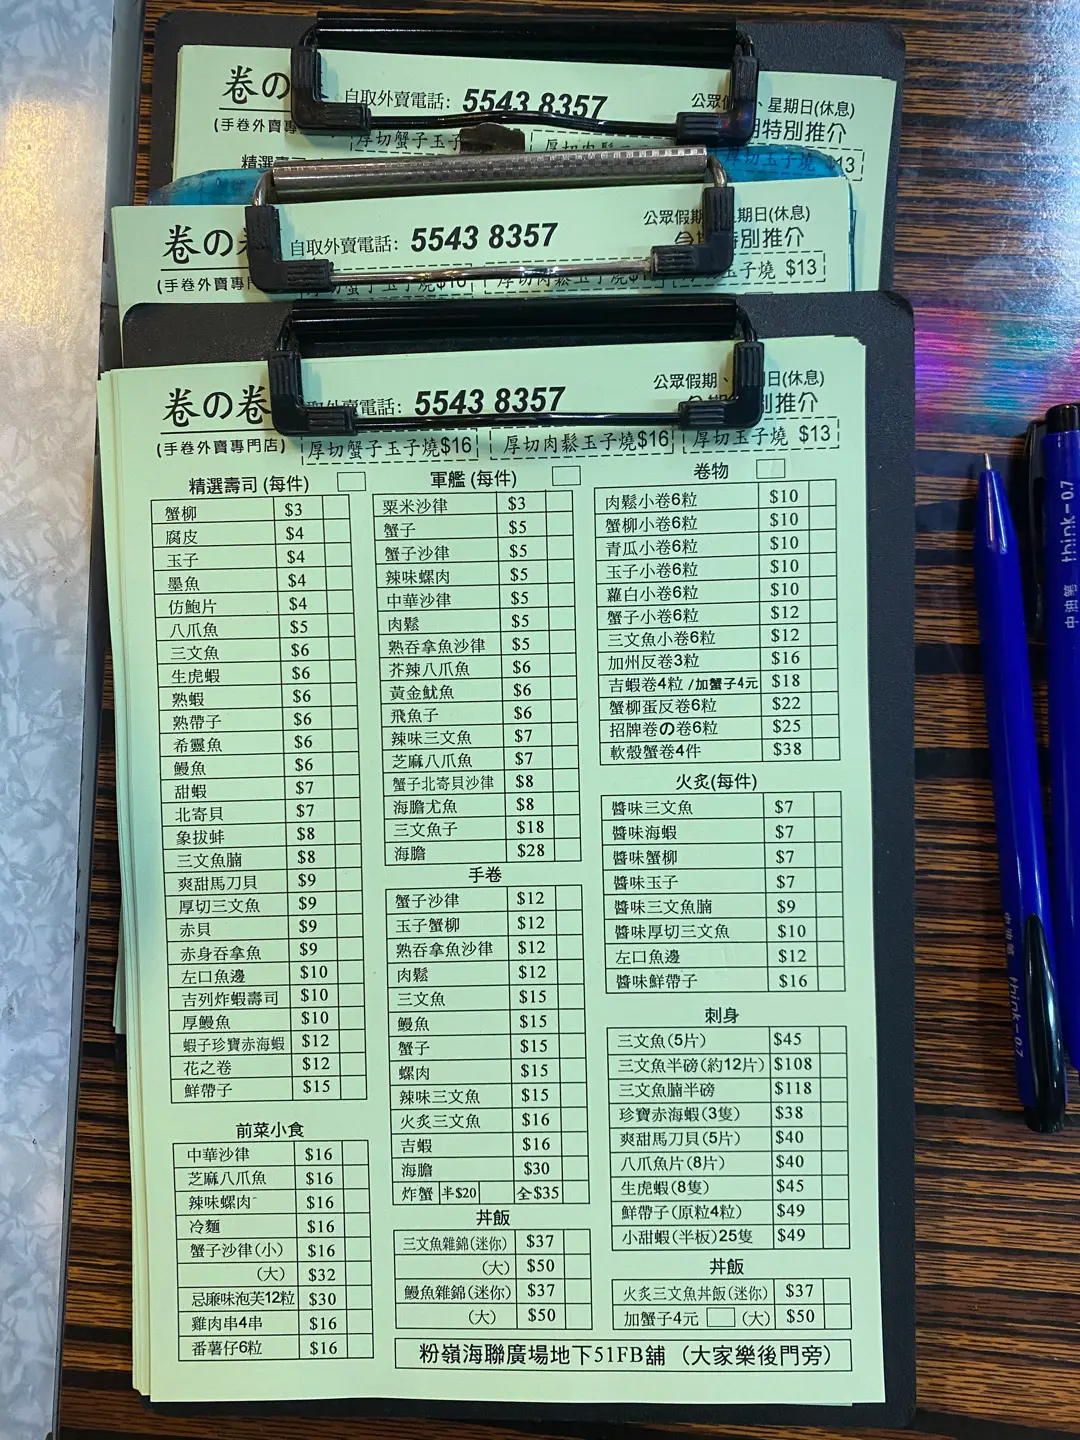 卷の
自取外賣電話: 5543 8357
公眾假 、星期日(休息)
期特別推介
(手卷外賣專
厚切蟹子玉子
厚切玉子燒 $13
精選壽司
卷の
自取外賣電話: 5543 8357
公眾假期 星期日(休息)
今期特別推介
(手卷外賣專
厚切蟹子玉子燒$16
厚切肉鬆玉子燒
玉子燒 $13
卷の卷
取外賣電話: 5543 8357
公眾假期、 期日(休息)
今期特別推介
(手卷外賣專門店)
厚切蟹子玉子燒$16
厚切肉鬆玉子燒$16
厚切玉子燒 $13
精選壽司 (每件)
蟹柳 $3
腐皮 $4
玉子 $4
墨魚 $4
仿鮑片 $4
八爪魚 $5
三文魚 $6
生虎蝦 $6
熟蝦 $6
熟帶子 $6
希靈魚 $6
鰻魚 $6
甜蝦 $7
北寄貝 $7
象拔蚌 $8
三文魚腩 $8
爽甜馬刀貝 $9
厚切三文魚 $9
赤貝 $9
赤身吞拿魚 $9
左口魚邊 $10
吉列炸蝦壽司 $10
厚鰻魚 $10
蝦子珍寶赤海蝦 $12
花之卷 $12
鮮帶子 $15
前菜小食
中華沙律 $16
芝麻八爪魚 $16
辣味螺肉 $16
冷麵 $16
蟹子沙律(小) $16
(大) $32
忌廉味泡芙12粒 $30
雞肉串4串 $16
番薯仔6粒 $16
軍艦 (每件)
粟米沙律 $3
蟹子 $5
蟹子沙律 $5
辣味螺肉 $5
中華沙律 $5
肉鬆 $5
熟吞拿魚沙律 $5
芥辣八爪魚 $6
黃金魷魚 $6
飛魚子 $6
辣味三文魚 $7
芝麻八爪魚 $7
蟹子北寄貝沙律 $8
海膽尤魚 $8
三文魚子 $18
海膽 $28
手卷
蟹子沙律 $12
玉子蟹柳 $12
熟吞拿魚沙律 $12
肉鬆 $12
三文魚 $15
鰻魚 $15
蟹子 $15
螺肉 $15
辣味三文魚 $15
火炙三文魚 $16
吉蝦 $16
海膽 $30
炸蟹 半$20 全$35
丼飯
三文魚雜錦(迷你) $37
(大) $50
鰻魚雜錦(迷你) $37
(大) $50
卷物
肉鬆小卷6粒 $10
蟹柳小卷6粒 $10
青瓜小卷6粒 $10
玉子小卷6粒 $10
蘿白小卷6粒 $10
蟹子小卷6粒 $12
三文魚小卷6粒 $12
加州反卷3粒 $16
吉蝦卷4粒 /加蟹子4元 $18
蟹柳蛋反卷6粒 $22
招牌卷の卷6粒 $25
軟殼蟹卷4件 $38
火炙(每件)
醬味三文魚 $7
醬味海蝦 $7
醬味蟹柳 $7
醬味玉子 $7
醬味三文魚腩 $9
醬味厚切三文魚 $10
左口魚邊 $12
醬味鮮帶子 $16
刺身
三文魚(5片) $45
三文魚半磅(約12片) $108
三文魚腩半磅 $118
珍寶赤海蝦(3隻) $38
爽甜馬刀貝(5片) $40
八爪魚片(8片) $40
生虎蝦(8隻) $45
鮮帶子(原粒4粒) $49
小甜蝦(半板)25隻 $49
丼飯
火炙三文魚丼飯(迷你) $37
加蟹子4元 (大) $50
粉嶺海聯廣場地下51FB舖 (大家樂後門旁)
think-0.7
中油筆
中油筆
think-0.7